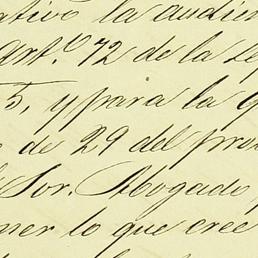 ativo la audien
art.º 72 de la Le
5, y para la q
de 29 del prov
Sor. Abogado
ner lo que cree